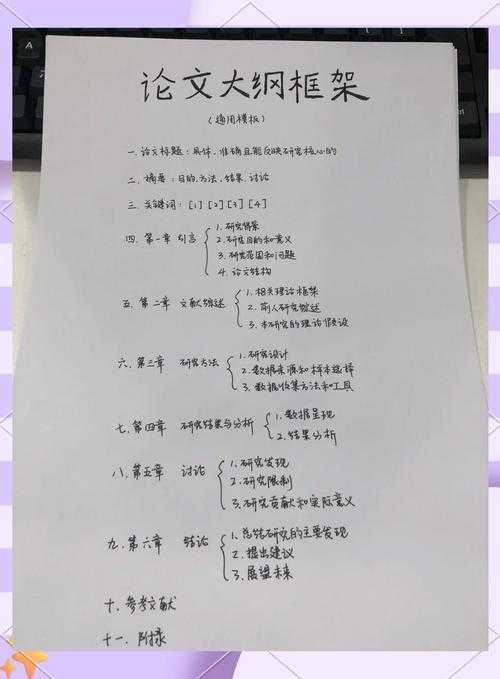 论文大纲框架
(通用模板)
一.论文标题:具体.准确且能反映研究核心的
二.摘要:目的.方法.结果.讨论
三.关键词:[1][2][3][4]
四.第一章 引言
1.研究背景
2.研究目的和意义
3.研究范围和问题
4.论文结构
五.第二章 文献综述
1.相关理论框架
2.前人研究综述
3.本研究的理论假设
六.第三章 研究方法
1.研究设计
2.数据来源和样本选择
3.数据收集方法和工具
七.第四章 研究结果与分析
1.数据呈现
2.结果分析
八.第五章 讨论
1.研究发现
2.研究限制
3.研究贡献和实际意义
九.第六章 结论
1.总结研究的主要发现
2.提出建议
3.展望未来
十.参考文献
十一.附录